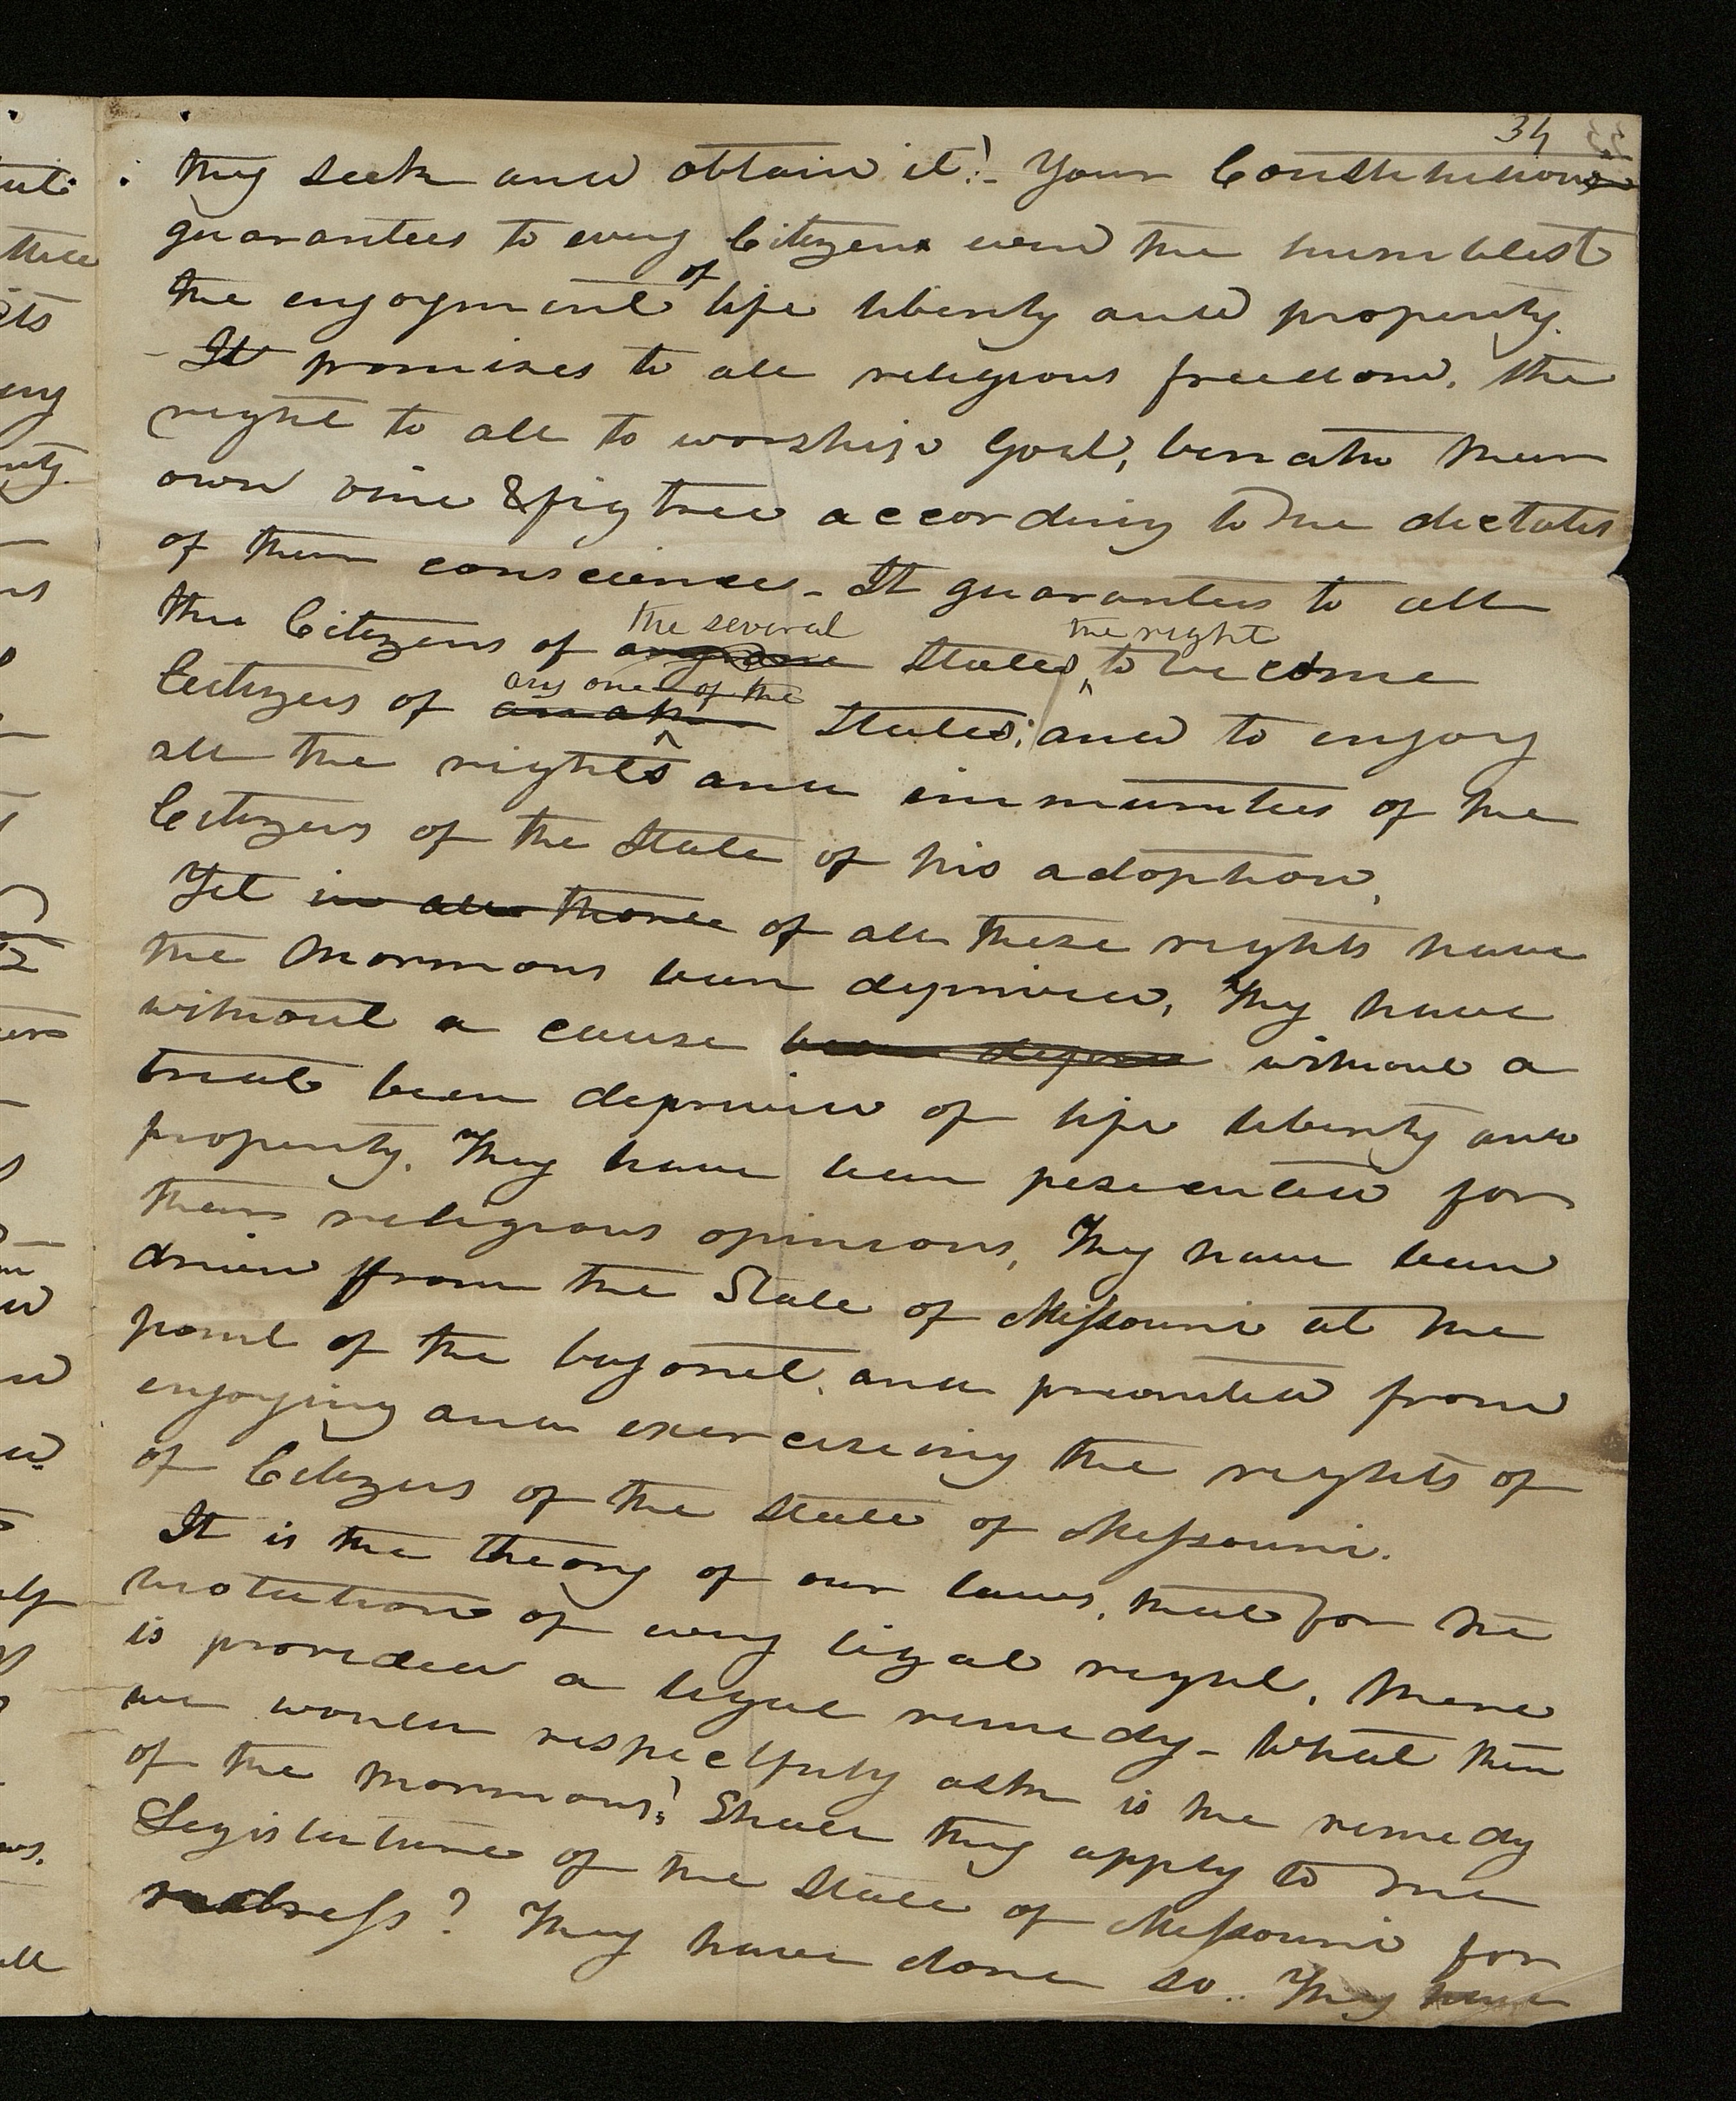 34
they seek and obtain it? - Your Constitution
guarantees to every Citizen even the humblest
the enjoyment of life liberty and property.
- It promises to all religious freedom, the
right to all to worship God, beneath their
own vine & fig tree according to the dictates
of their conscience - It guarantees to all
the several the right
the Citizens of any one States, to become
any one of the
Citizens of another States; and to enjoy
all the rights and immunities of the
Citizens of the State of his adoption,
Yet in all these of all these rights have
the Mormons been deprived, They have
without a cause been depriv without a
trial been deprived of life liberty and
property. They have been pesecuted for
their religious opinions, They have been
driven from the State of Missouri at the
point of the bayonet, and prevented from
enjoying and exercising the rights of
of Citizens of the State of Missouri.
It is the theory of our laws, that for the
violation of every legal right, there
is provided a legal remedy - What then
we would respectfully ask is the remedy
of the Mormons? Shall they apply to the
Legislature of the State of Missouri for
redress? They have done so.. They have